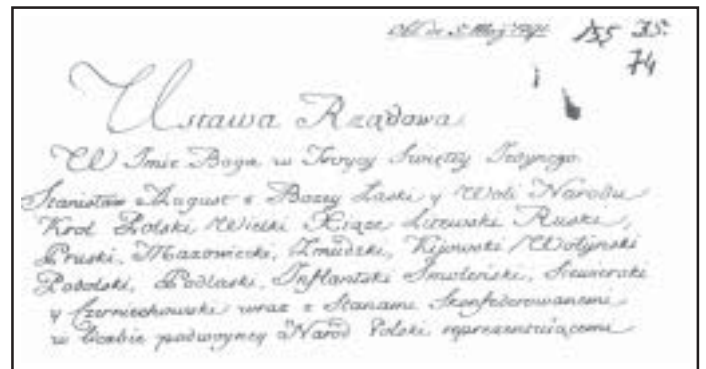 Obl. de 5. Maij 1791 155 35.
74
Ustawa Rządowa
W Imie Boga w Troycy Swiętey Iedynego
Stanisław August z Bożey Łaski y Woli Narodu
Krol Polski, Wielki Xiąże Litewski, Ruski,
Pruski, Mazowiecki, Zmudzki, Kijowski, Wołyński
Podolski, Podlaski, Inflantski, Smoleński, Siewierski
y Czerniechowski wraz z Stanami Skonfederowanemi
w liczbie podwoyney Naród Polski reprezentuiącemi